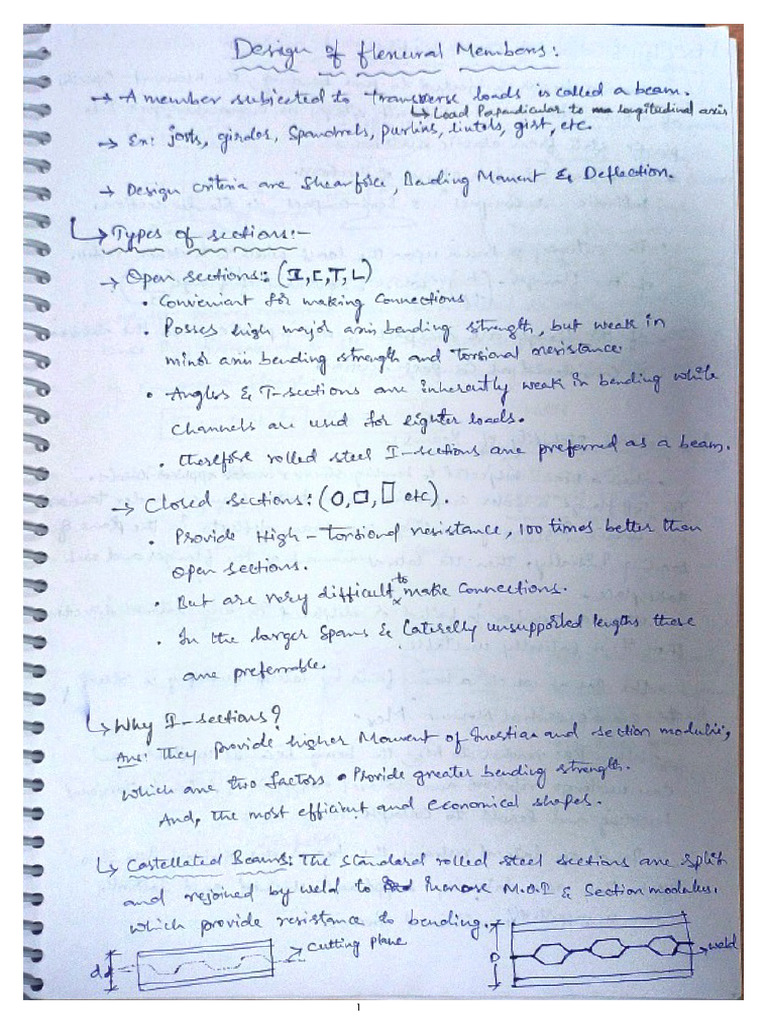 Design of flexural Members:
→ A member subjected to Transverse loads is called a beam.
↳ Load Papendicular to longitudinal axis
→ Ex: josts, girdos, Spandrels, purlins, lintols, gist, etc.
→ Design criteria are Shearforce, Bending Moment & Deflection.
↳ Types of sections:-
→ Open sections: (I, C, T, L)
• Convenient for making Connections
• Posses high major axis bending strength, but weak in
minor axis bending strength and torsional resistance.
• Angles & T-sections are inherently weak in bending while
channels are used for lighter loads.
• therefore rolled steel I-sections are preferred as a beam.
→ Closed sections: (O, □, ▯ etc).
• Provide High-torsional resistance, 100 times better then
open sections.
• But are very difficult to make Connections.
• In the larger Spans & laterally unsupported lengths these
are preferrable.
↳ Why I-sections?
Ans: They provide higher Moment of Inertia and section modulii,
which are two factors Provide greater bending strength.
And, the most efficient and economical shapes.
↳ Castellated Beams: The standard rolled steel sections are split
and rejoined by weld to Increase M.O.I & Section modulus.
which provide resistance to bending.
d
→ Cutting plane
D
→ weld
1